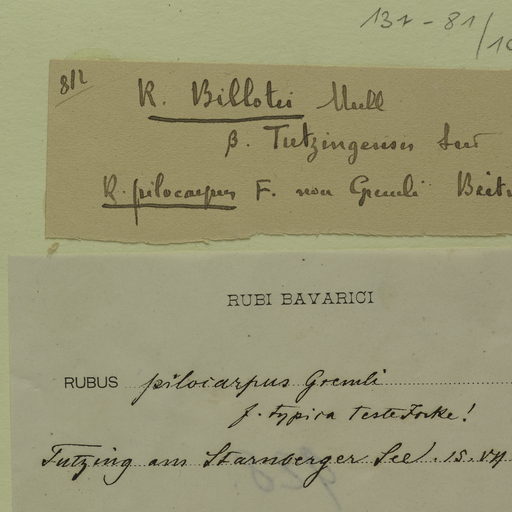 131-81/10
8/2
R. Billotii Mull
β. Tutzingensis Sud
R. pilocarpus F. non Gremli
RUBI BAVARICI
RUBUS pilocarpus Gremli
f. typica teste Focke!
Tutzing am Starnberger See. 15. VII